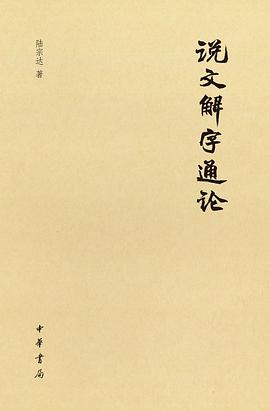 说文解字通论
陆宗达 著
中华书局